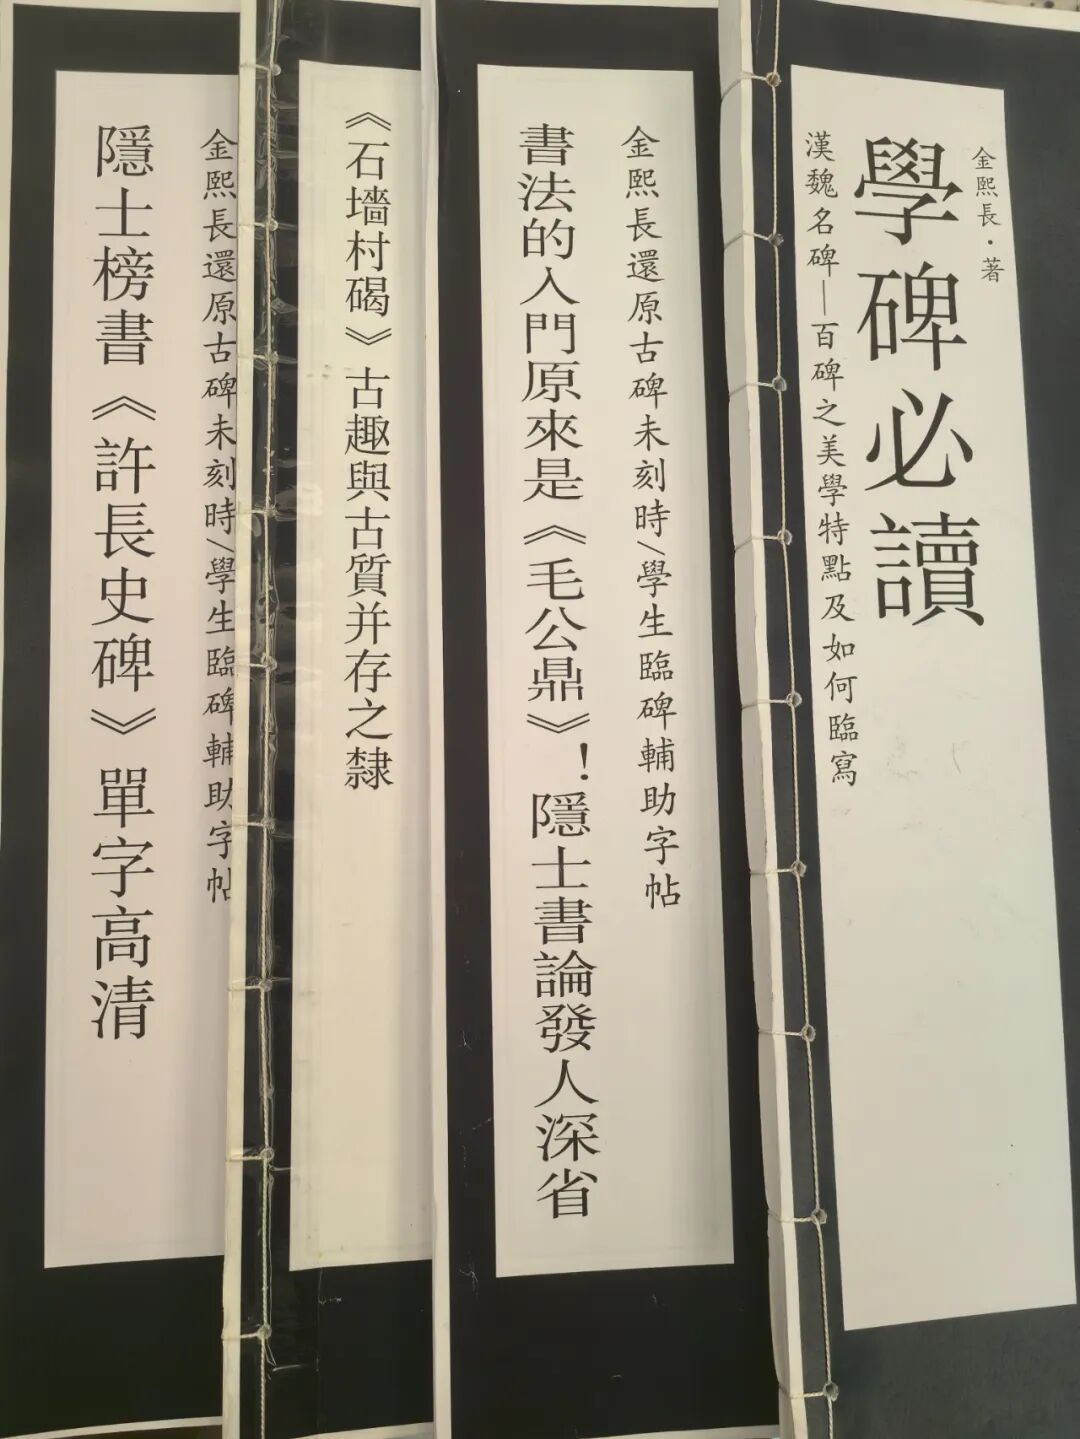 金熙長·著
學碑必讀
漢魏名碑—百碑之美學特點及如何臨寫
金熙長還原古碑未刻時/學生臨碑輔助字帖
書法的入門原來是《毛公鼎》！隱士書論發人深省
《石墻村碣》古趣與古質并存之隸
金熙長還原古碑未刻時/學生臨碑輔助字帖
隱士榜書《許長史碑》單字高清